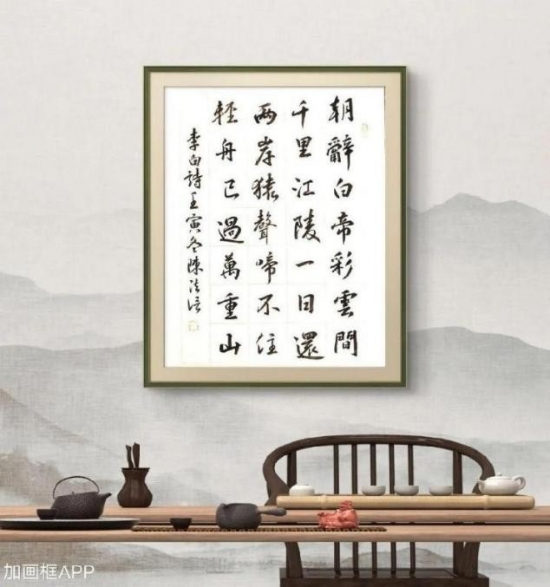 朝辭白帝彩雲間
千里江陵一日還
兩岸猿聲啼不住
輕舟已過萬重山
李白詩壬寅冬陳法
加画框APP